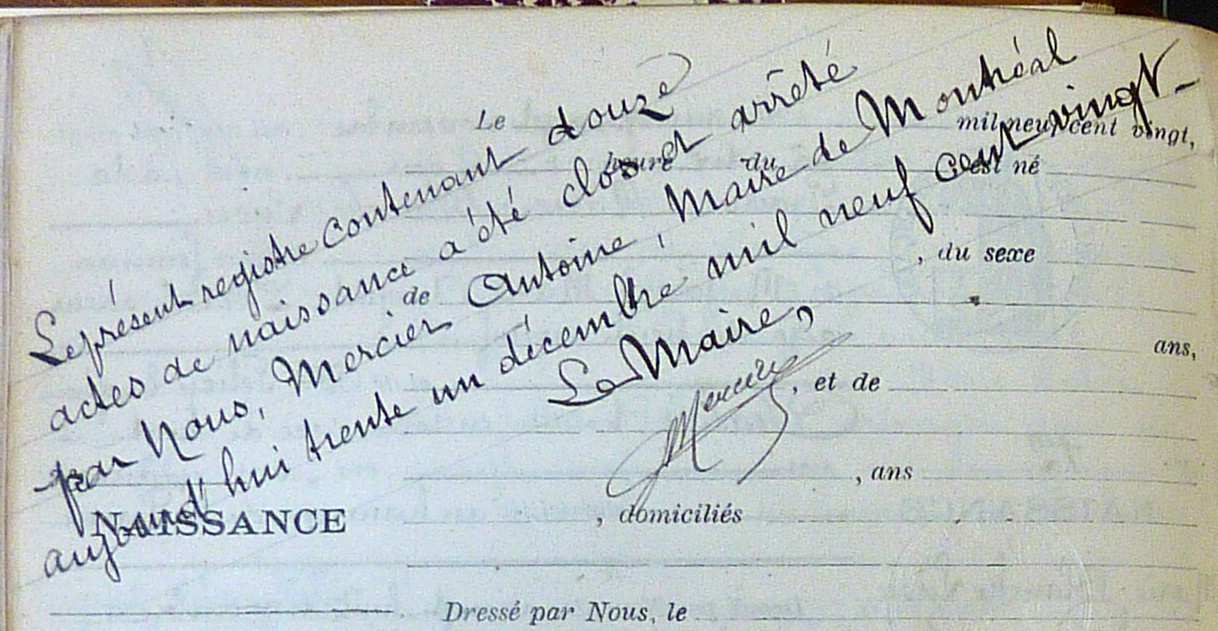 Le présent registre contenant douze
actes de naissance a été clos et arrêté
par Nous, Mercier Antoine, Maire de Montréal
aujourd'hui trente un décembre mil neuf cent vingt_
Le Maire,
Mercier
Le mil neuf cent vingt,
heure du est né
, du sexe
de
ans,
, et de
, ans
NAISSANCE , domiciliés
Dressé par Nous, le